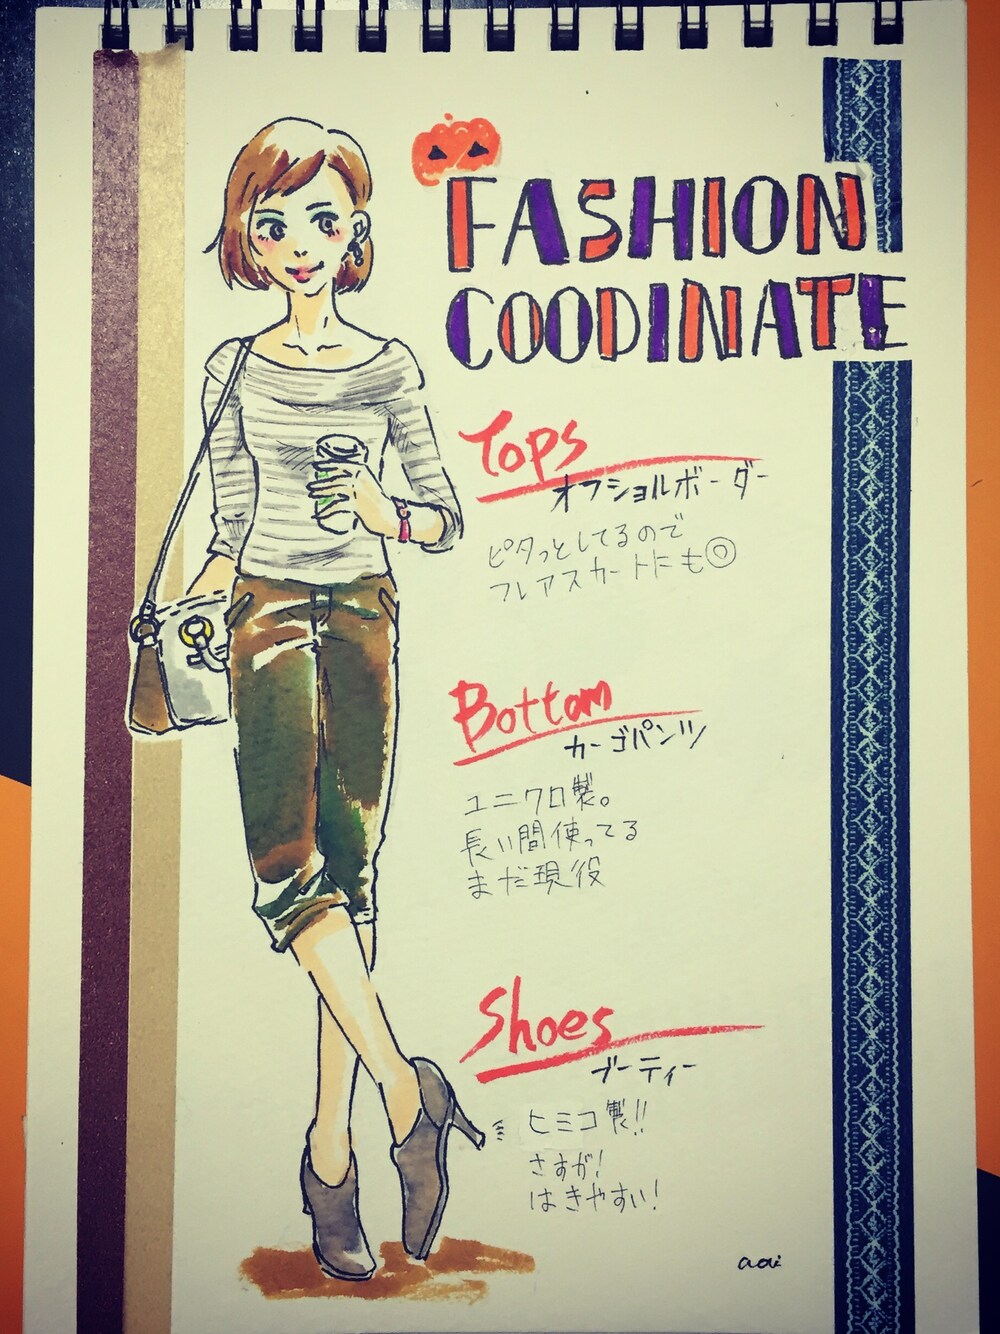 FASHION
COODINATE
Tops
オフショルボーダー
ピタっとしてるので
フレアスカートにも◎
Bottom
カーゴパンツ
ユニクロ製。
長い間使ってる
まだ現役
Shoes
ブーティー
ヒミコ製!!
さすが!
はきやすい!
aoi